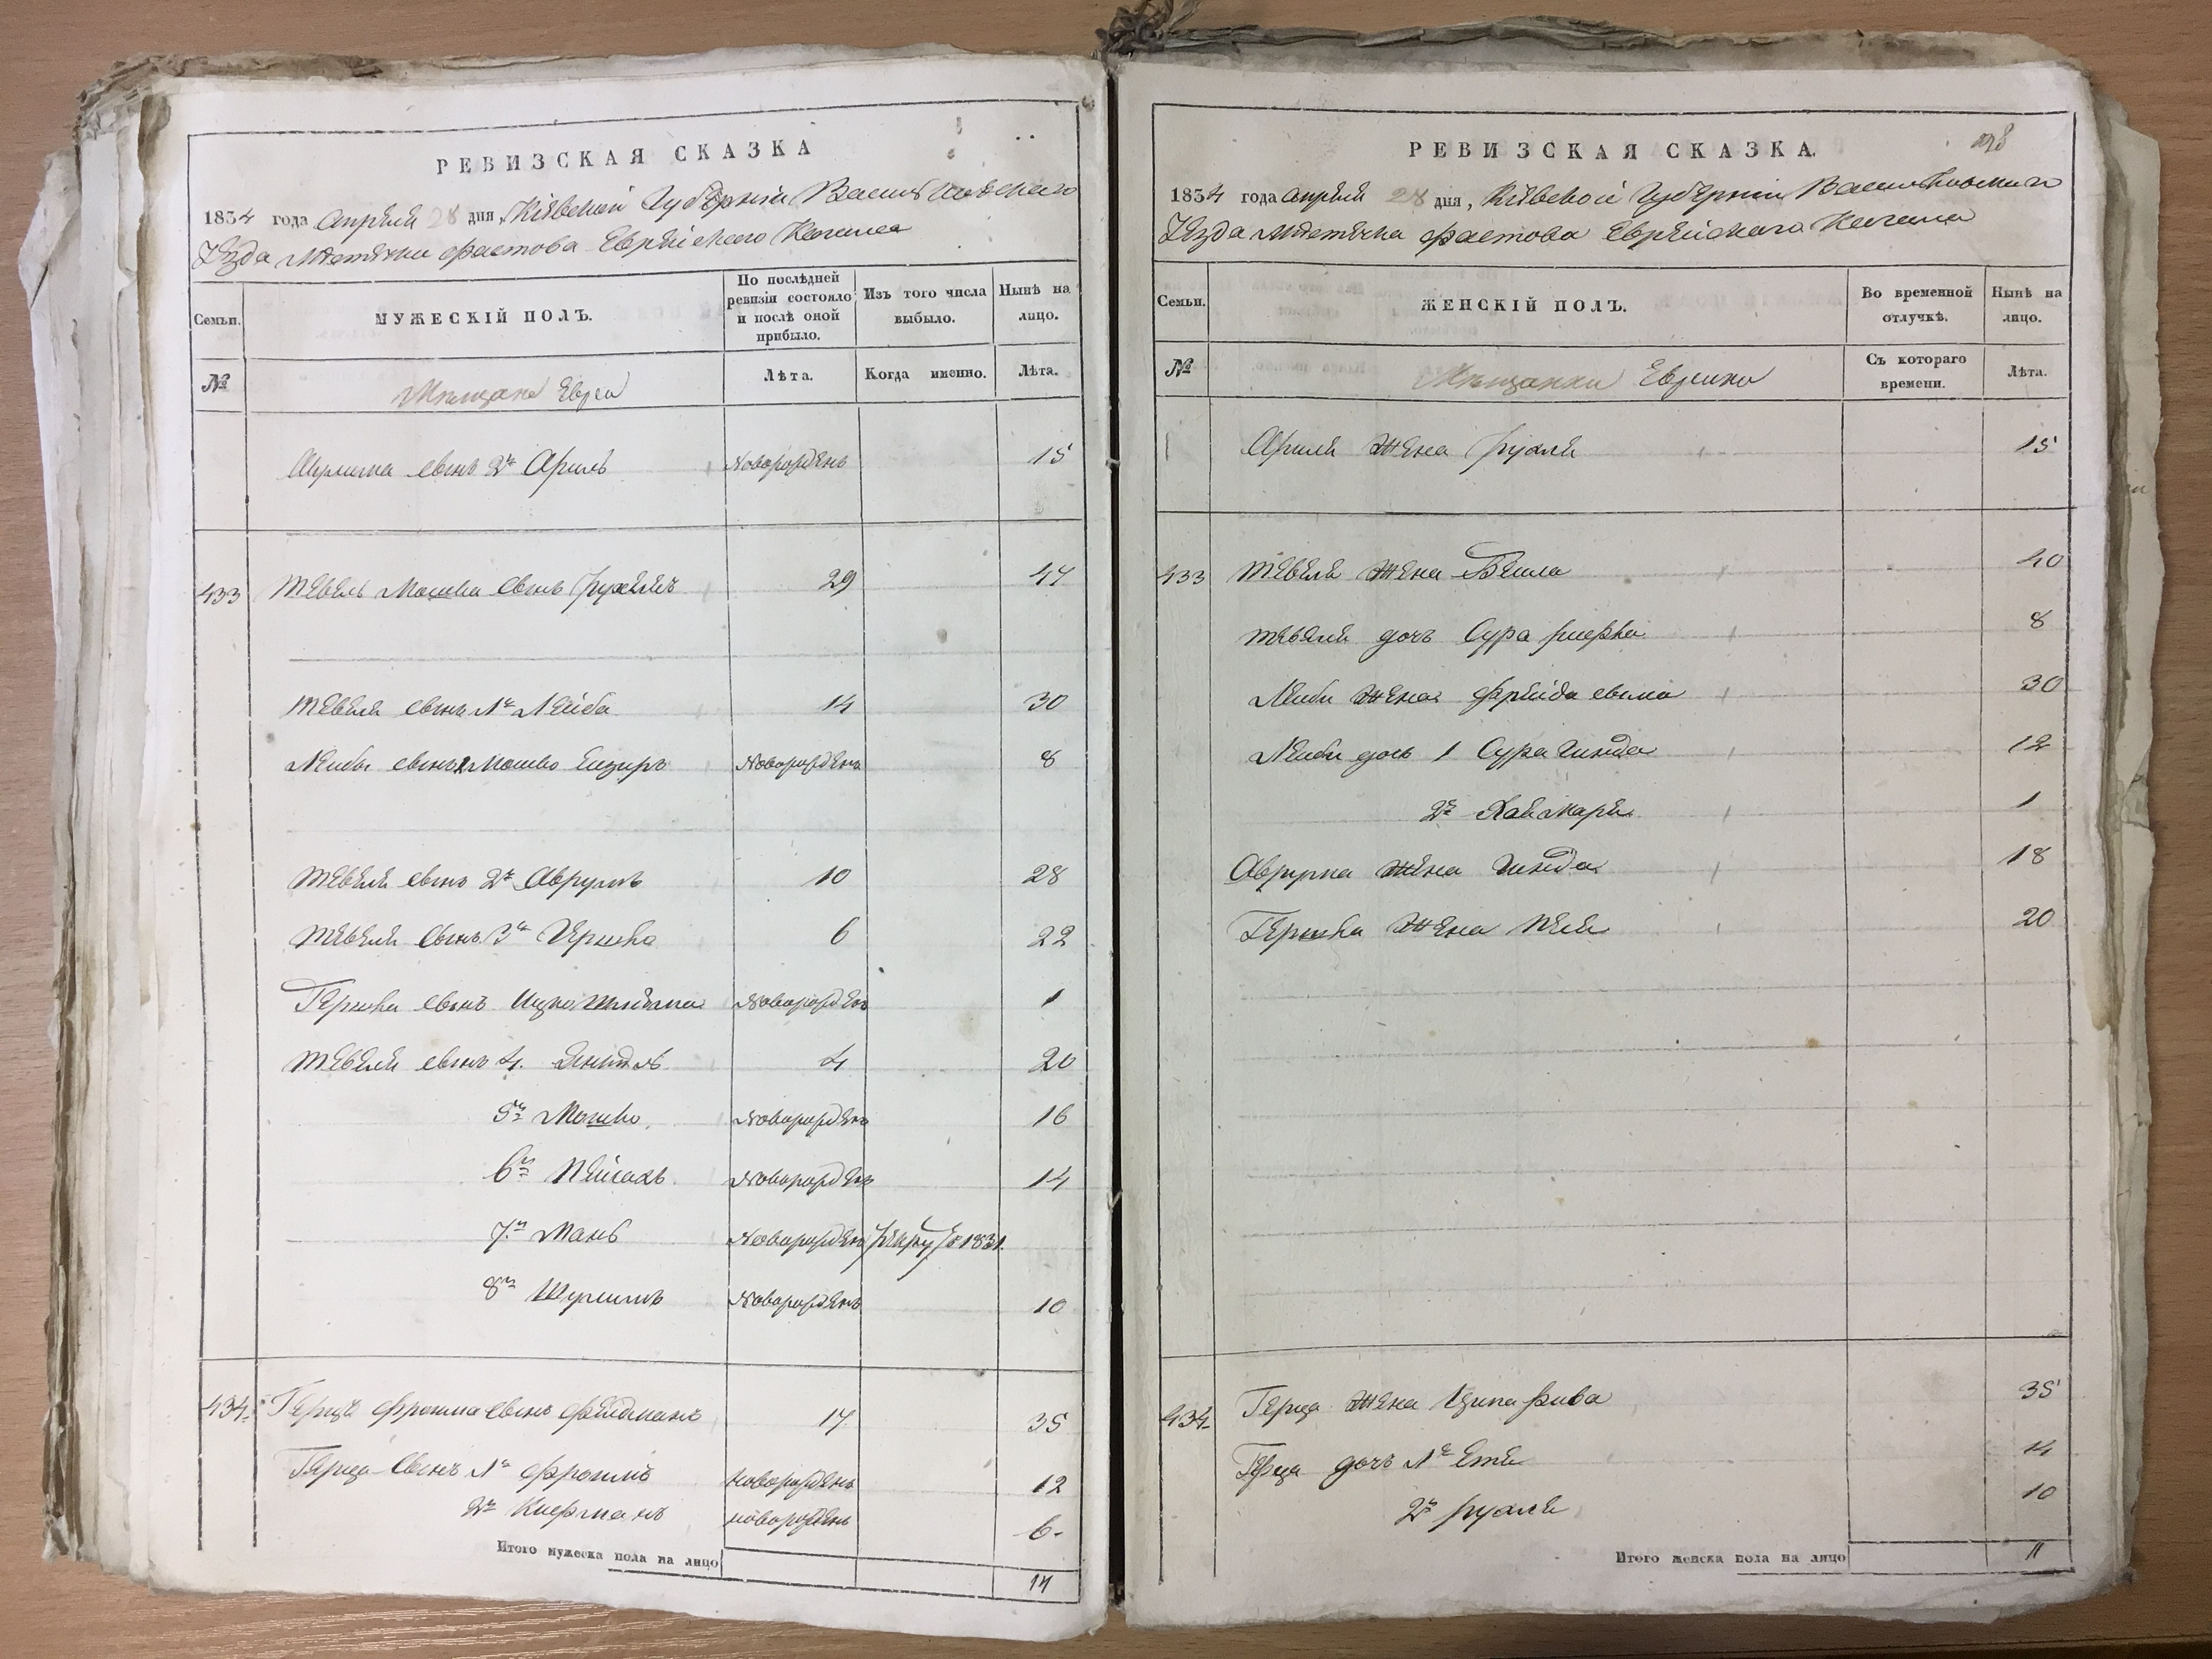 РЕВИЗСКАЯ СКАЗКА
1834 года Апрѣля 28 дня, Кіевской Губерніи Васильковскаго
Уѣзда Мѣстечка Фастова Еврейскаго Кагала
Семьи.
МУЖЕСКІЙ ПОЛЪ.
По послѣдней ревизіи состояло и послѣ оной прибыло.
Изъ того числа выбыло.
Нынѣ на лицо.
№
Мещане Евреи
Лѣта.
Когда именно.
Лѣта.
сынъ 2й Ариль новорожденъ 15
433 Тевель Мошка сынъ 29 47
Тевеля сынъ 1й Лейба 14 30
Лейбы сынъ Мошко новорожденъ 8
Тевеля сынъ 2й Аврумъ 10 28
Тевеля сынъ 3й Гершко 6 22
Гершка сынъ Ицко новорожденъ 1
Тевеля сынъ 4. 4 20
5й Мошко новорожденъ 16
6й Пейсахъ новорожденъ 14
7й Мань новорожденъ 1831.
8й Шулимъ новорожденъ 10
434. Герцъ Фроима сынъ Фельдманъ 17 35
Герца сынъ 1й Фроимъ новорожденъ 12
2й новорожденъ 6
Итого мужеска пола на лицо 14
РЕВИЗСКАЯ СКАЗКА.
1834 года Апрѣля 28 дня, Кіевской Губерніи Васильковскаго
Уѣзда Мѣстечка Фастова Еврейскаго Кагала
Семьи.
ЖЕНСКІЙ ПОЛЪ.
Во временной отлучкѣ.
Нынѣ на лицо.
№
Мещанки Еврейки
Съ котораго времени.
Лѣта.
Ариля жена Рухля 15
433 Тевеля жена Бейла 40
Тевеля дочь Сура Рифка 8
Лейби жена Фрейда 30
Лейби дочь 1 Сура Гинда 12
2я 1
Аврума жена Гинда 18
Гершка жена 20
434. Герца жена Ципа Рива 35
Герца дочь 1я 14
2я Рухля 10
Итого женска пола на лицо 11